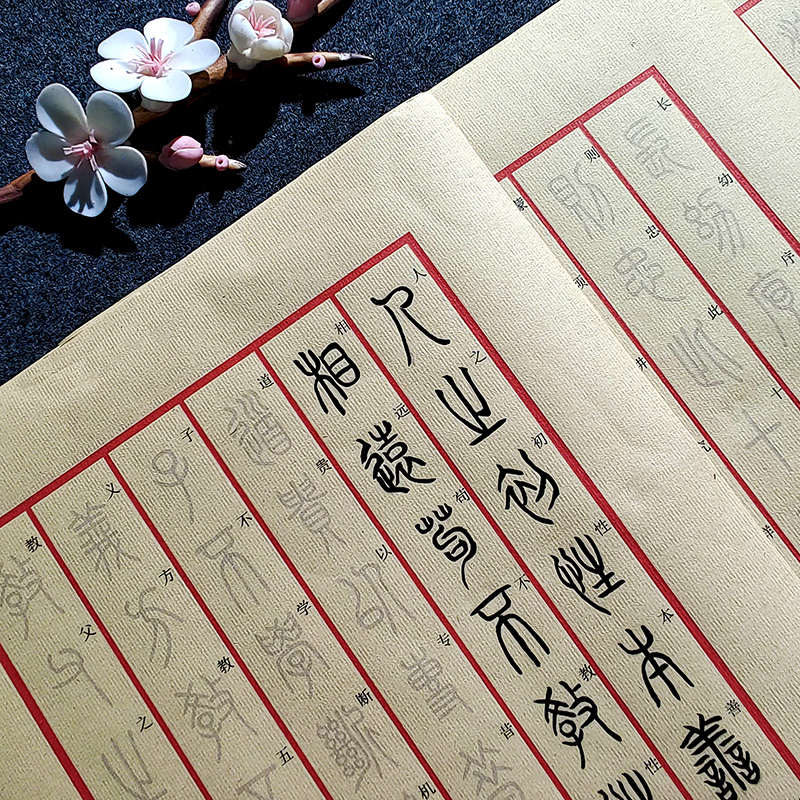 长幼序
则忠此十
人之初性本善
相远苟不教性
道贵以专昔
子不学断机
义方教五
教父之